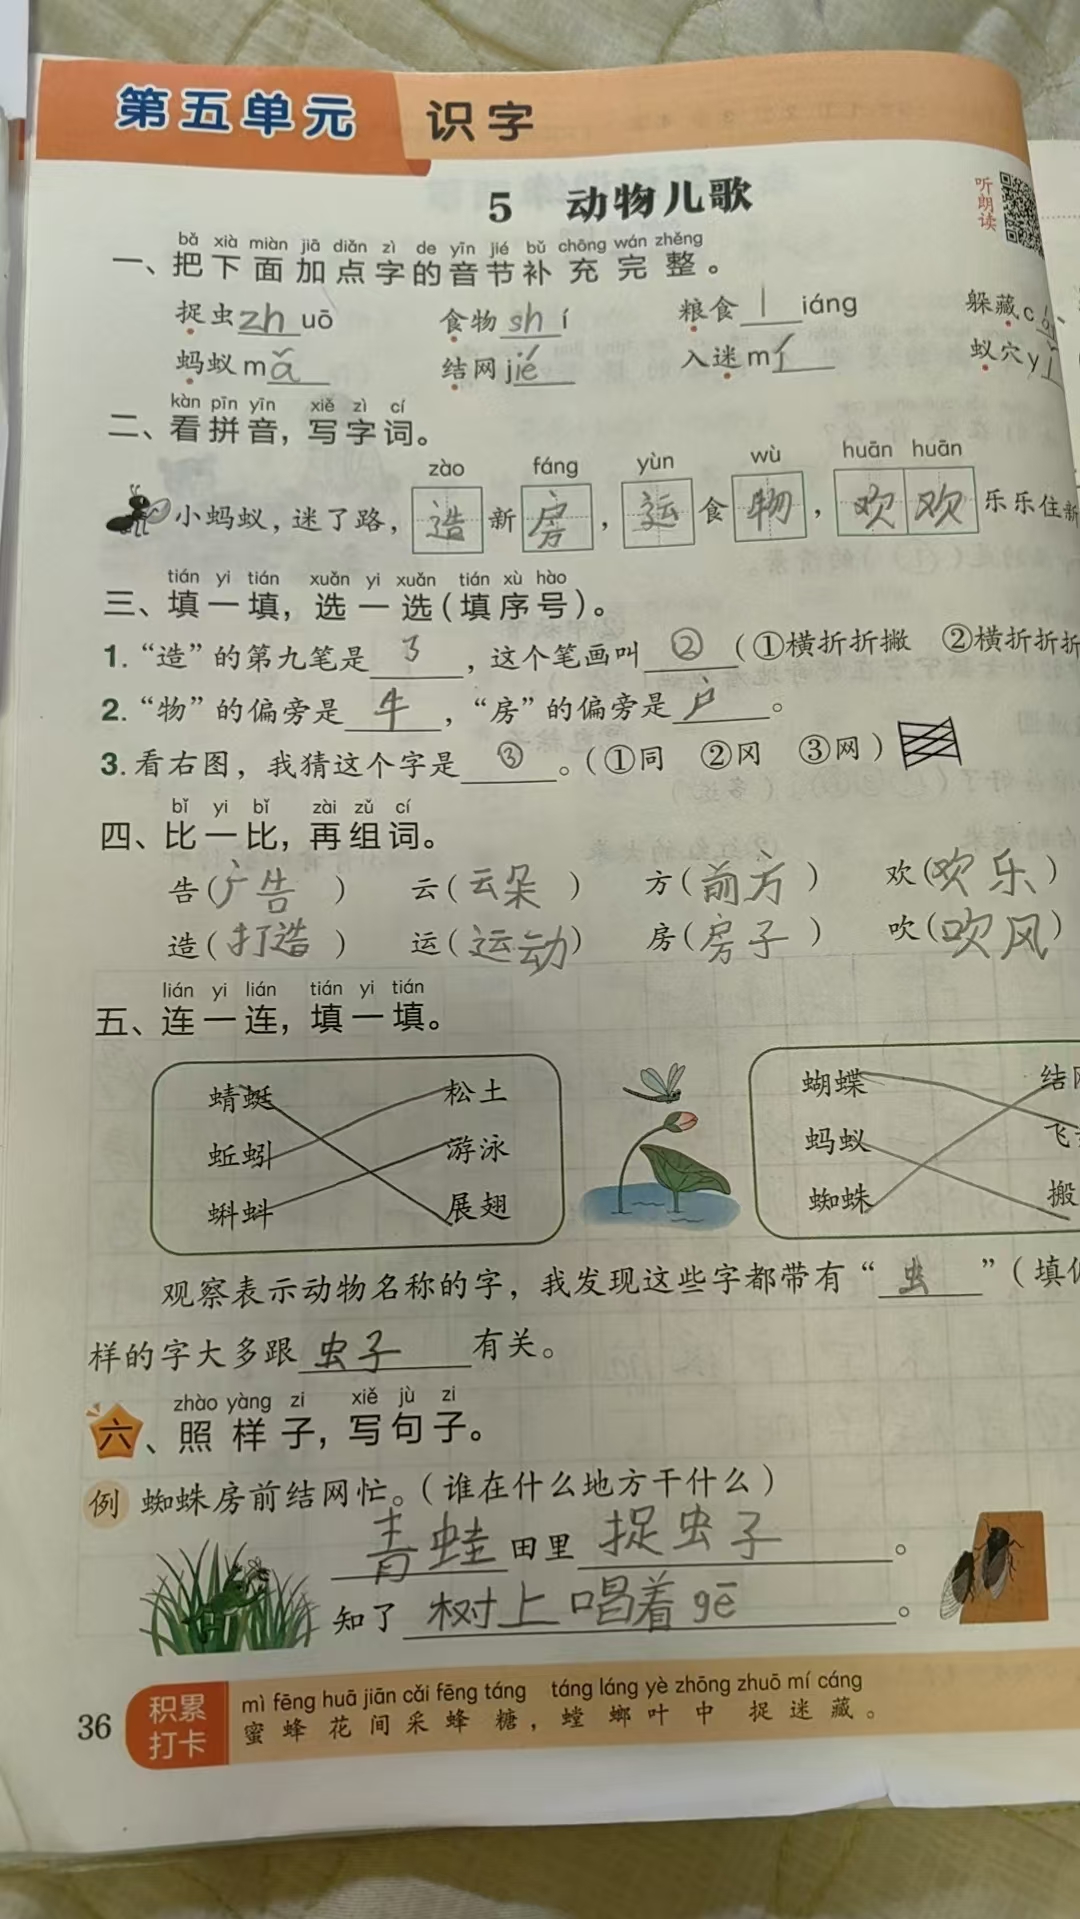 第五单元 识字
5 动物儿歌
听朗读
bǎ xià miàn jiā diǎn zì de yīn jié bǔ chōng wán zhěng
一、把下面加点字的音节补充完整。
捉虫zhuō 食物shí 粮食liáng 躲藏c
蚂蚁mǎ 结网jié 入迷mí 蚁穴yǐ
kàn pīn yīn xiě zì cí
二、看拼音，写字词。
zào fáng yùn wù huān huān
小蚂蚁，迷了路，造新房，运食物，欢欢乐乐住新
tián yi tián xuǎn yi xuǎn tián xù hào
三、填一填，选一选（填序号）。
1.“造”的第九笔是，这个笔画叫②（①横折折撇 ②横折折折
2.“物”的偏旁是牛，“房”的偏旁是户。
3.看右图，我猜这个字是③。（①同 ②冈 ③网）
bǐ yi bǐ zài zǔ cí
四、比一比，再组词。
告（广告） 云（云朵） 方（前方） 欢（欢乐）
造（打造） 运（运动） 房（房子） 吹（吹风）
lián yi lián tián yi tián
五、连一连，填一填。
蜻蜓 松土 蝴蝶 结网
蚯蚓 游泳 蚂蚁 飞
蝌蚪 展翅 蜘蛛 搬
观察表示动物名称的字，我发现这些字都带有“虫”（填
样的字大多跟虫子有关。
zhào yàng zi xiě jù zi
六、照样子，写句子。
例 蜘蛛房前结网忙。（谁在什么地方干什么）
青蛙田里捉虫子。
知了树上唱着gē。
mì fēng huā jiān cǎi fēng táng táng láng yè zhōng zhuō mí cáng
36 积累打卡 蜜蜂花间采蜂糖，螳螂叶中捉迷藏。